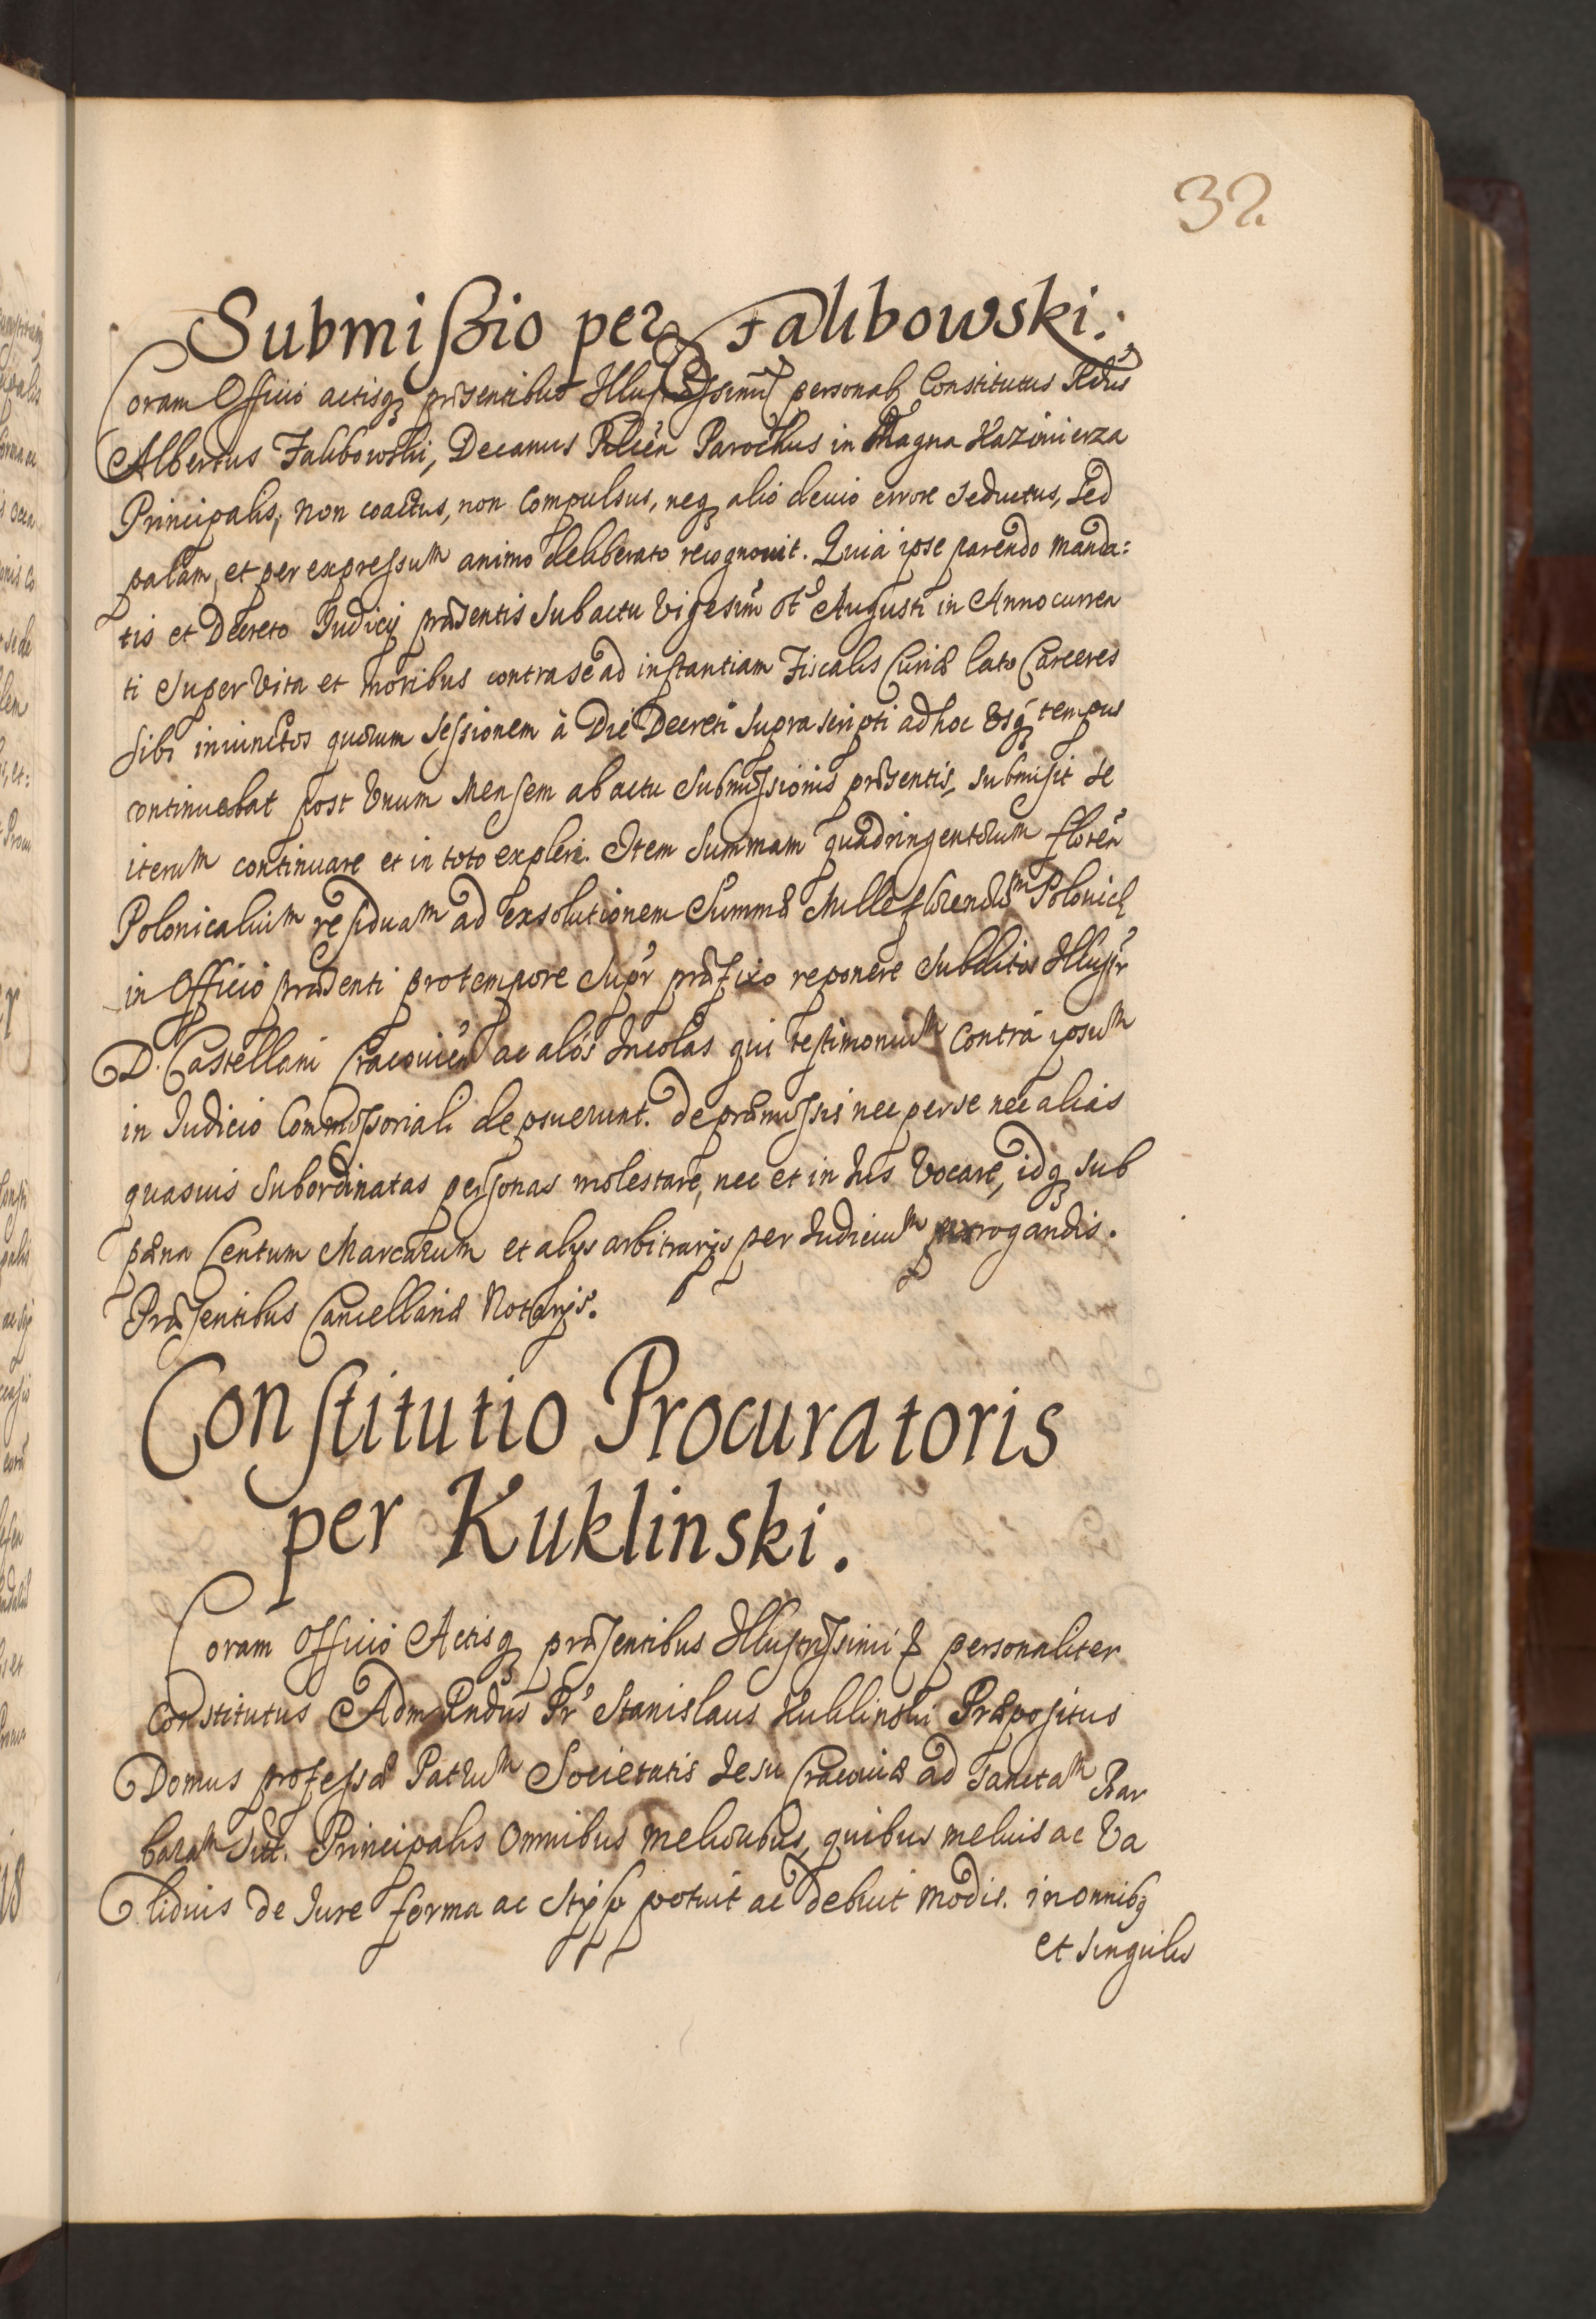 32
Submissio per Falibowski.
Coram Officio actisq; prӕsentibus Illustrissimi personal. Constitutus Rdus
Albertus Falibowski, Decanus Pilcen Parochus in Magna Kazimierza
Principalis, non coactus, non compulsus, neq; alio devio errore seductus, sed
palam, et per expressum animo deliberato recognovit. Quia ipse parendo manda=
tis et Decreto Iudicij prӕsentis sub actu vigesim Augusti in Anno curren
ti super vita et moribus contra se ad instantiam Fiscalis Curiӕ lato Carceres
sibi iniunctos quorum sessionem à Die Decreti suprascripti ad hoc usq; tempus
continuabat post unum Mensem ab actu submissionis prӕsentis, submisit se
iterum continuare et in toto explere. Item summam quadringentorum floren
Polonicalium residuam ad exsolutionem Summӕ Mille florenorum Polonical
in Officio prӕsenti pro tempore supr prӕfixo reponere subditos Illustr
D. Castellani Cracovien ac alos Incolas qui testimonium contra ipsum
in Iudicio Commissoriali deposuerunt. de prӕmissis nec per se nec alias
quasvis subordinatas personas molestare, nec et in Ius vocare, idq; sub
pӕna Centum Marcarum et alys arbitrarijs per Iudicium irrogandis.
Prӕsentibus Cancellariӕ Notarijs.
Constitutio Procuratoris
per Kuklinski.
Coram Officio Actisq; prӕsentibus Illustrissimi personaliter
constitutus Adm Rndus Pr Stanislaus Kuklinski Prӕpositus
Domus professӕ Patrum Societatis Iesu Cracoviӕ ad Sanctam Bar
baram sit. Principalis omnibus melioribus, quibus melius ac va
lidius de Iure forma ac stylo potuit ac debuit modis. in omnibq
et singulis